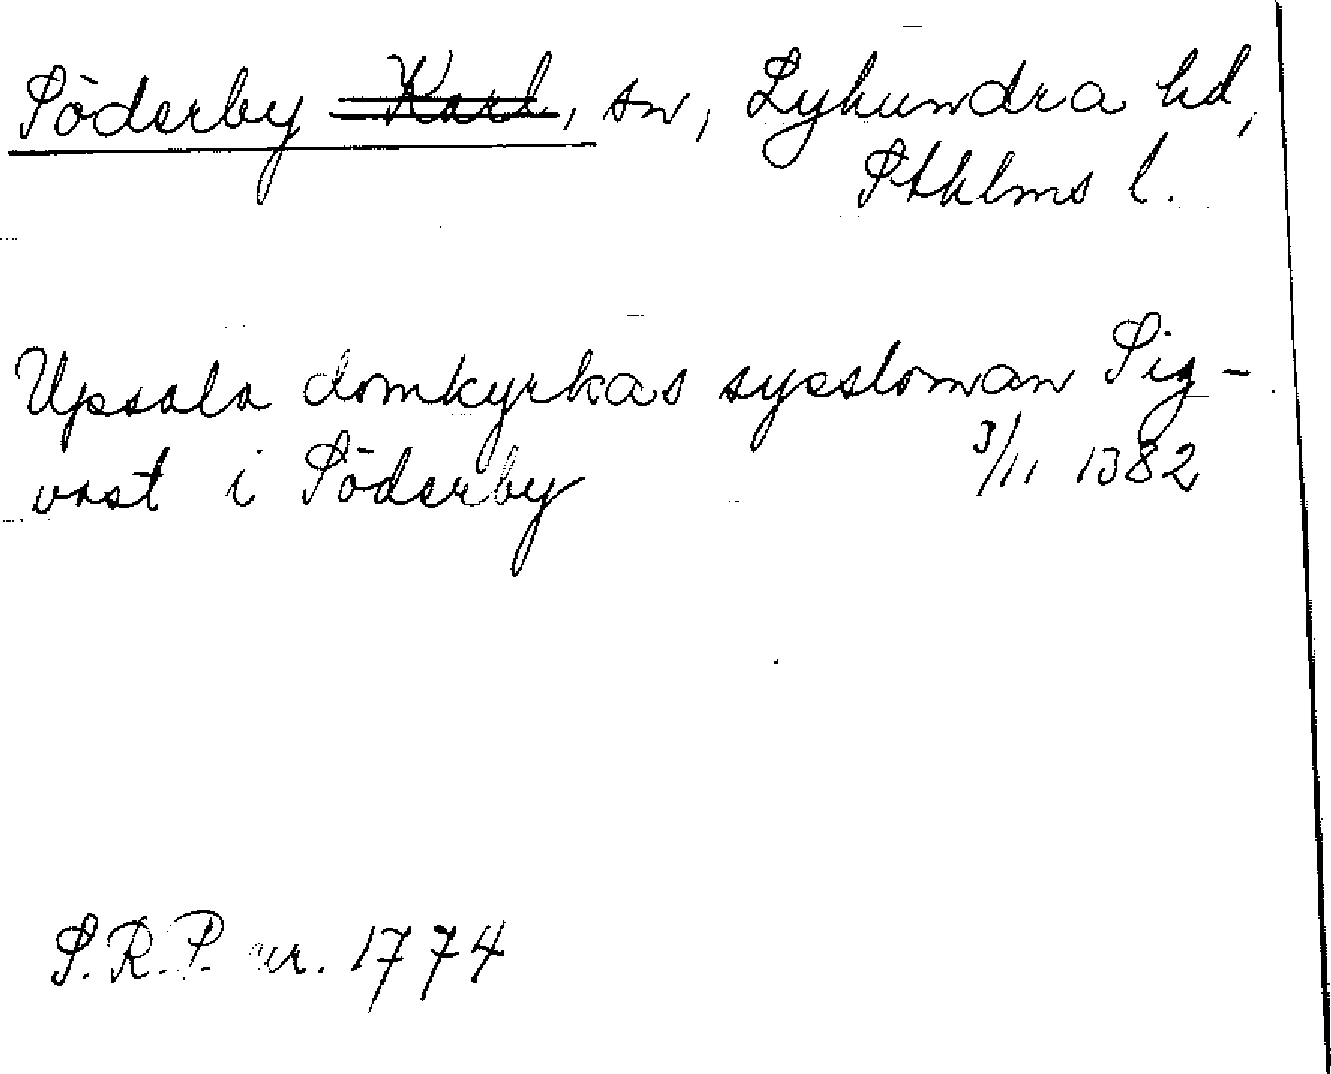 Söderby Karl, sn, Lyhundra hd,
Sthlms l.
Upsala domkyrkas syssloman Sig-
vast i Söderby 3/11 1382
S.R.P. nr. 1774